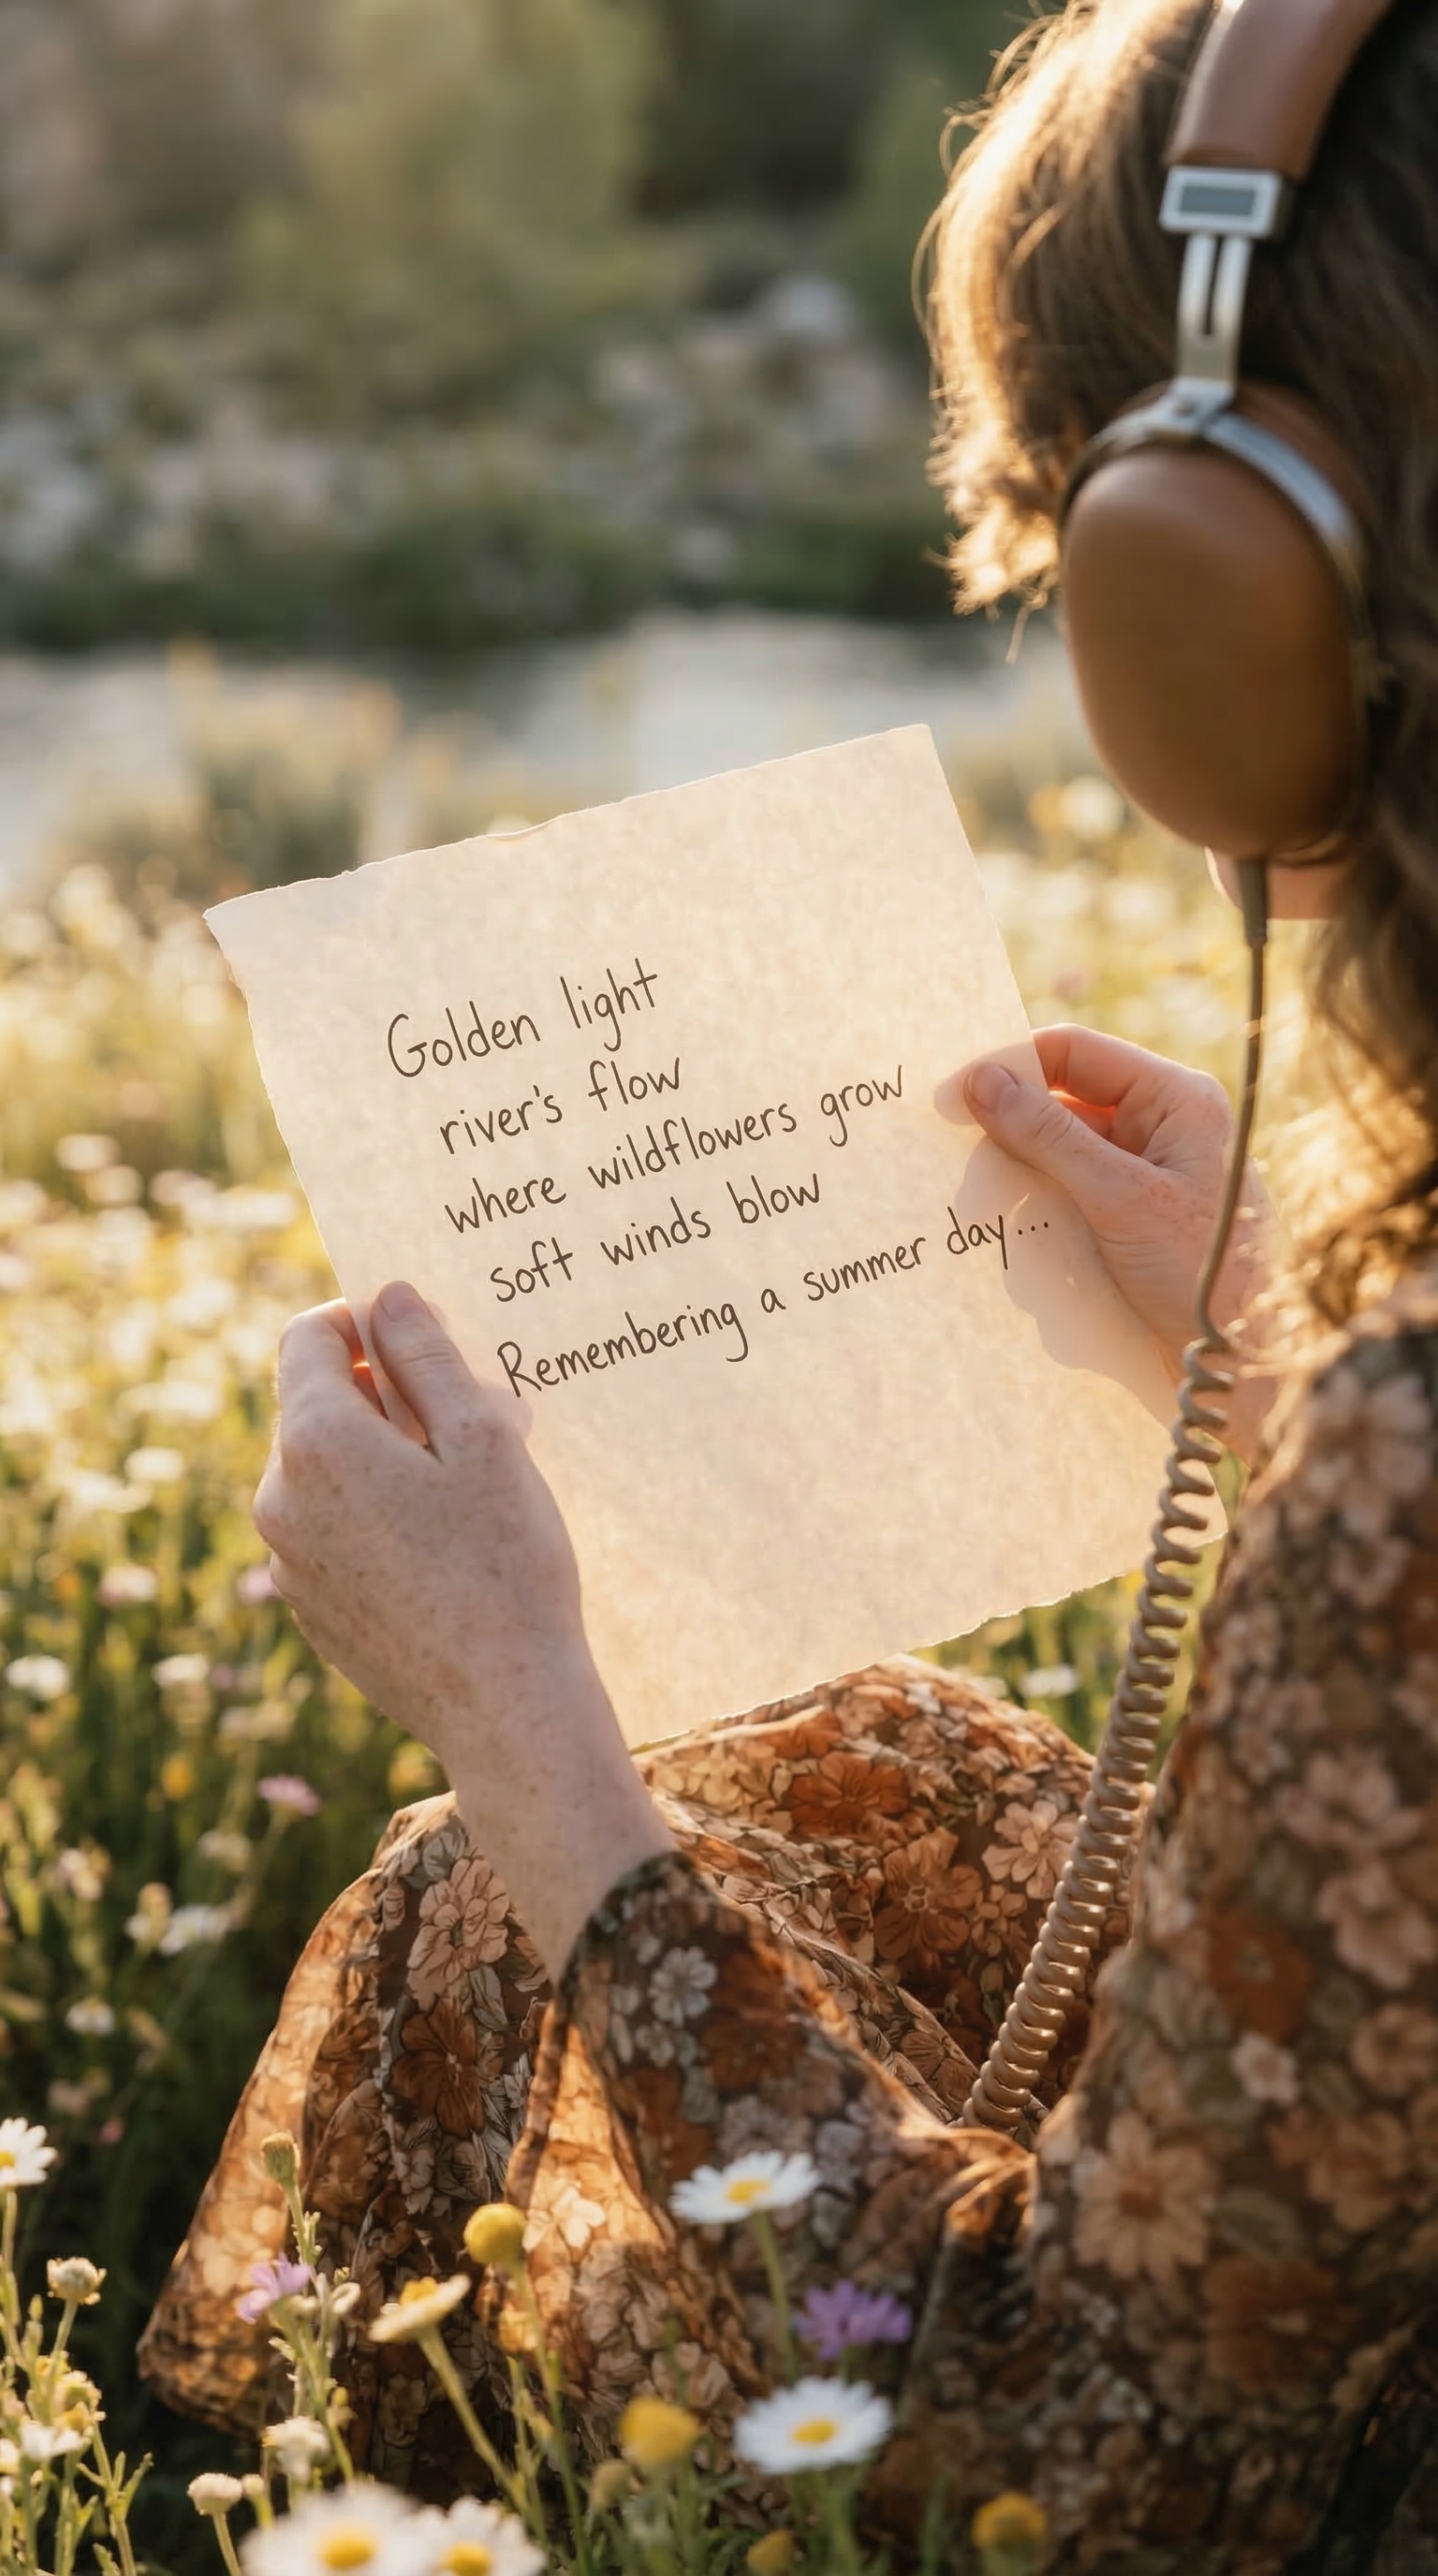 Golden light
river's flow
where wildflowers grow
soft winds blow
Remembering a summer day...